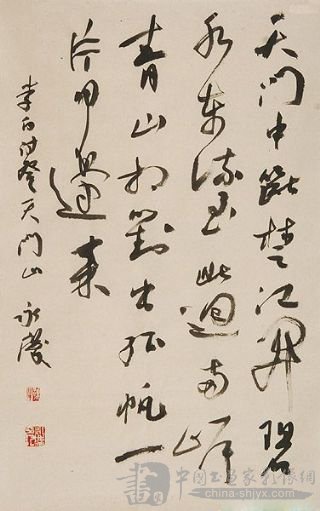 天门中断楚江開碧
水东流至此迴两岸
青山相對出孤帆一
片日边来
李白诗登天门山 永慶
書
中国书画家影像網
www.china-shjyx.com